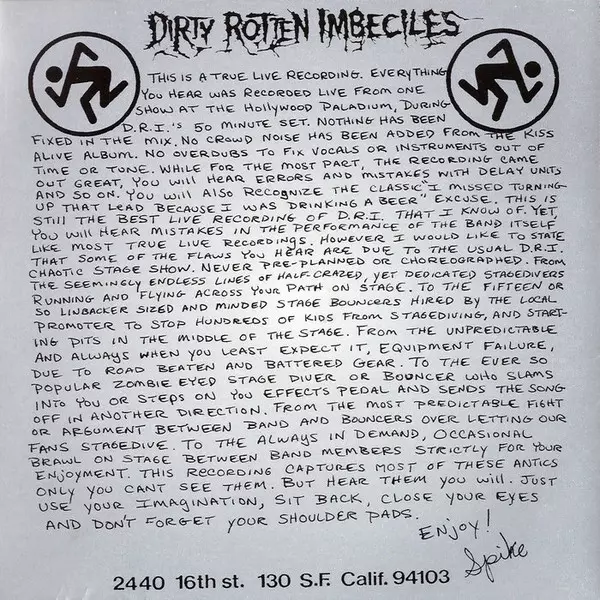 DIRTY ROTTEN IMBECILES
THIS IS A TRUE LIVE RECORDING. EVERYTHING
YOU HEAR WAS RECORDED LIVE FROM ONE
SHOW AT THE HOLLYWOOD PALADIUM, DURING
D.R.I.'S 50 MINUTE SET. NOTHING HAS BEEN
FIXED IN THE MIX. NO CROWD NOISE HAS BEEN ADDED FROM THE KISS
ALIVE ALBUM. NO OVERDUBS TO FIX VOCALS OR INSTRUMENTS OUT OF
TIME OR TUNE. WHILE FOR THE MOST PART, THE RECORDING CAME
OUT GREAT, YOU WILL HEAR ERRORS AND MISTAKES WITH DELAY UNITS
AND SO ON. YOU WILL ALSO RECOGNIZE THE CLASSIC "I MISSED TURNING
UP THAT LEAD BECAUSE I WAS DRINKING A BEER" EXCUSE. THIS IS
STILL THE BEST LIVE RECORDING OF D.R.I. THAT I KNOW OF. YET,
YOU WILL HEAR MISTAKES IN THE PERFORMANCE OF THE BAND ITSELF
LIKE MOST TRUE LIVE RECORDINGS. HOWEVER I WOULD LIKE TO STATE
THAT SOME OF THE FLAWS YOU HEAR ARE DUE TO THE USUAL D.R.I.
CHAOTIC STAGE SHOW. NEVER PRE-PLANNED OR CHOREOGRAPHED. FROM
THE SEEMINGLY ENDLESS LINES OF HALF-CRAZED, YET DEDICATED STAGEDIVERS
RUNNING AND FLYING ACROSS YOUR PATH ON STAGE. TO THE FIFTEEN OR
SO LINBACKER SIZED AND MINDED STAGE BOUNCERS HIRED BY THE LOCAL
PROMOTER TO STOP HUNDREDS OF KIDS FROM STAGEDIVING, AND START-
ING PITS IN THE MIDDLE OF THE STAGE. FROM THE UNPREDICTABLE
AND ALWAYS WHEN YOU LEAST EXPECT IT, EQUIPMENT FAILURE,
DUE TO ROAD BEATEN AND BATTERED GEAR. TO THE EVER SO
POPULAR ZOMBIE EYED STAGE DIVER OR BOUNCER WHO SLAMS
INTO YOU OR STEPS ON YOU EFFECTS PEDAL AND SENDS THE SONG
OFF IN ANOTHER DIRECTION. FROM THE MOST PREDICTABLE FIGHT
OR ARGUMENT BETWEEN BAND AND BOUNCERS OVER LETTING OUR
FANS STAGEDIVE. TO THE ALWAYS IN DEMAND, OCCASIONAL
BRAWL ON STAGE BETWEEN BAND MEMBERS STRICTLY FOR YOUR
ENJOYMENT. THIS RECORDING CAPTURES MOST OF THESE ANTICS
ONLY YOU CANT SEE THEM. BUT HEAR THEM YOU WILL. JUST
USE YOUR IMAGINATION, SIT BACK, CLOSE YOUR EYES
AND DON'T FORGET YOUR SHOULDER PADS.
ENJOY!
Spike
2440 16th st. 130 S.F. Calif. 94103